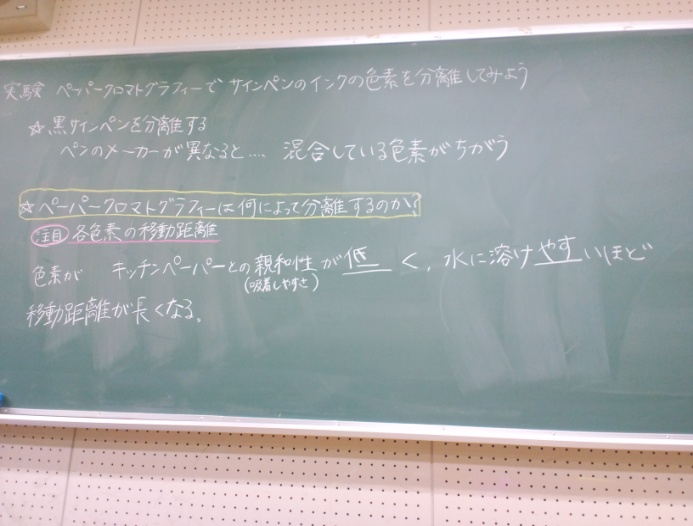 実験 ペーパークロマトグラフィーでサインペンのインクの色素を分離してみよう
☆黒サインペンを分離する
ペンのメーカーが異なると…. 混合している色素がちがう
☆ペーパークロマトグラフィーは何によって分離するのか?
注目 各色素の移動距離
色素が キッチンペーパーとの親和性が低く、水に溶けやすいほど
(吸着しやすさ)
移動距離が長くなる。